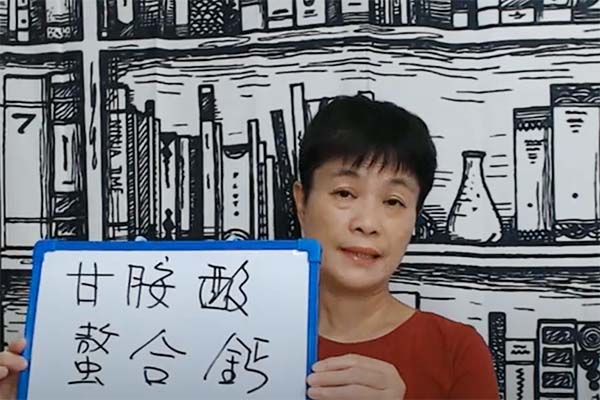 甘胺酸
螯合鈣
7